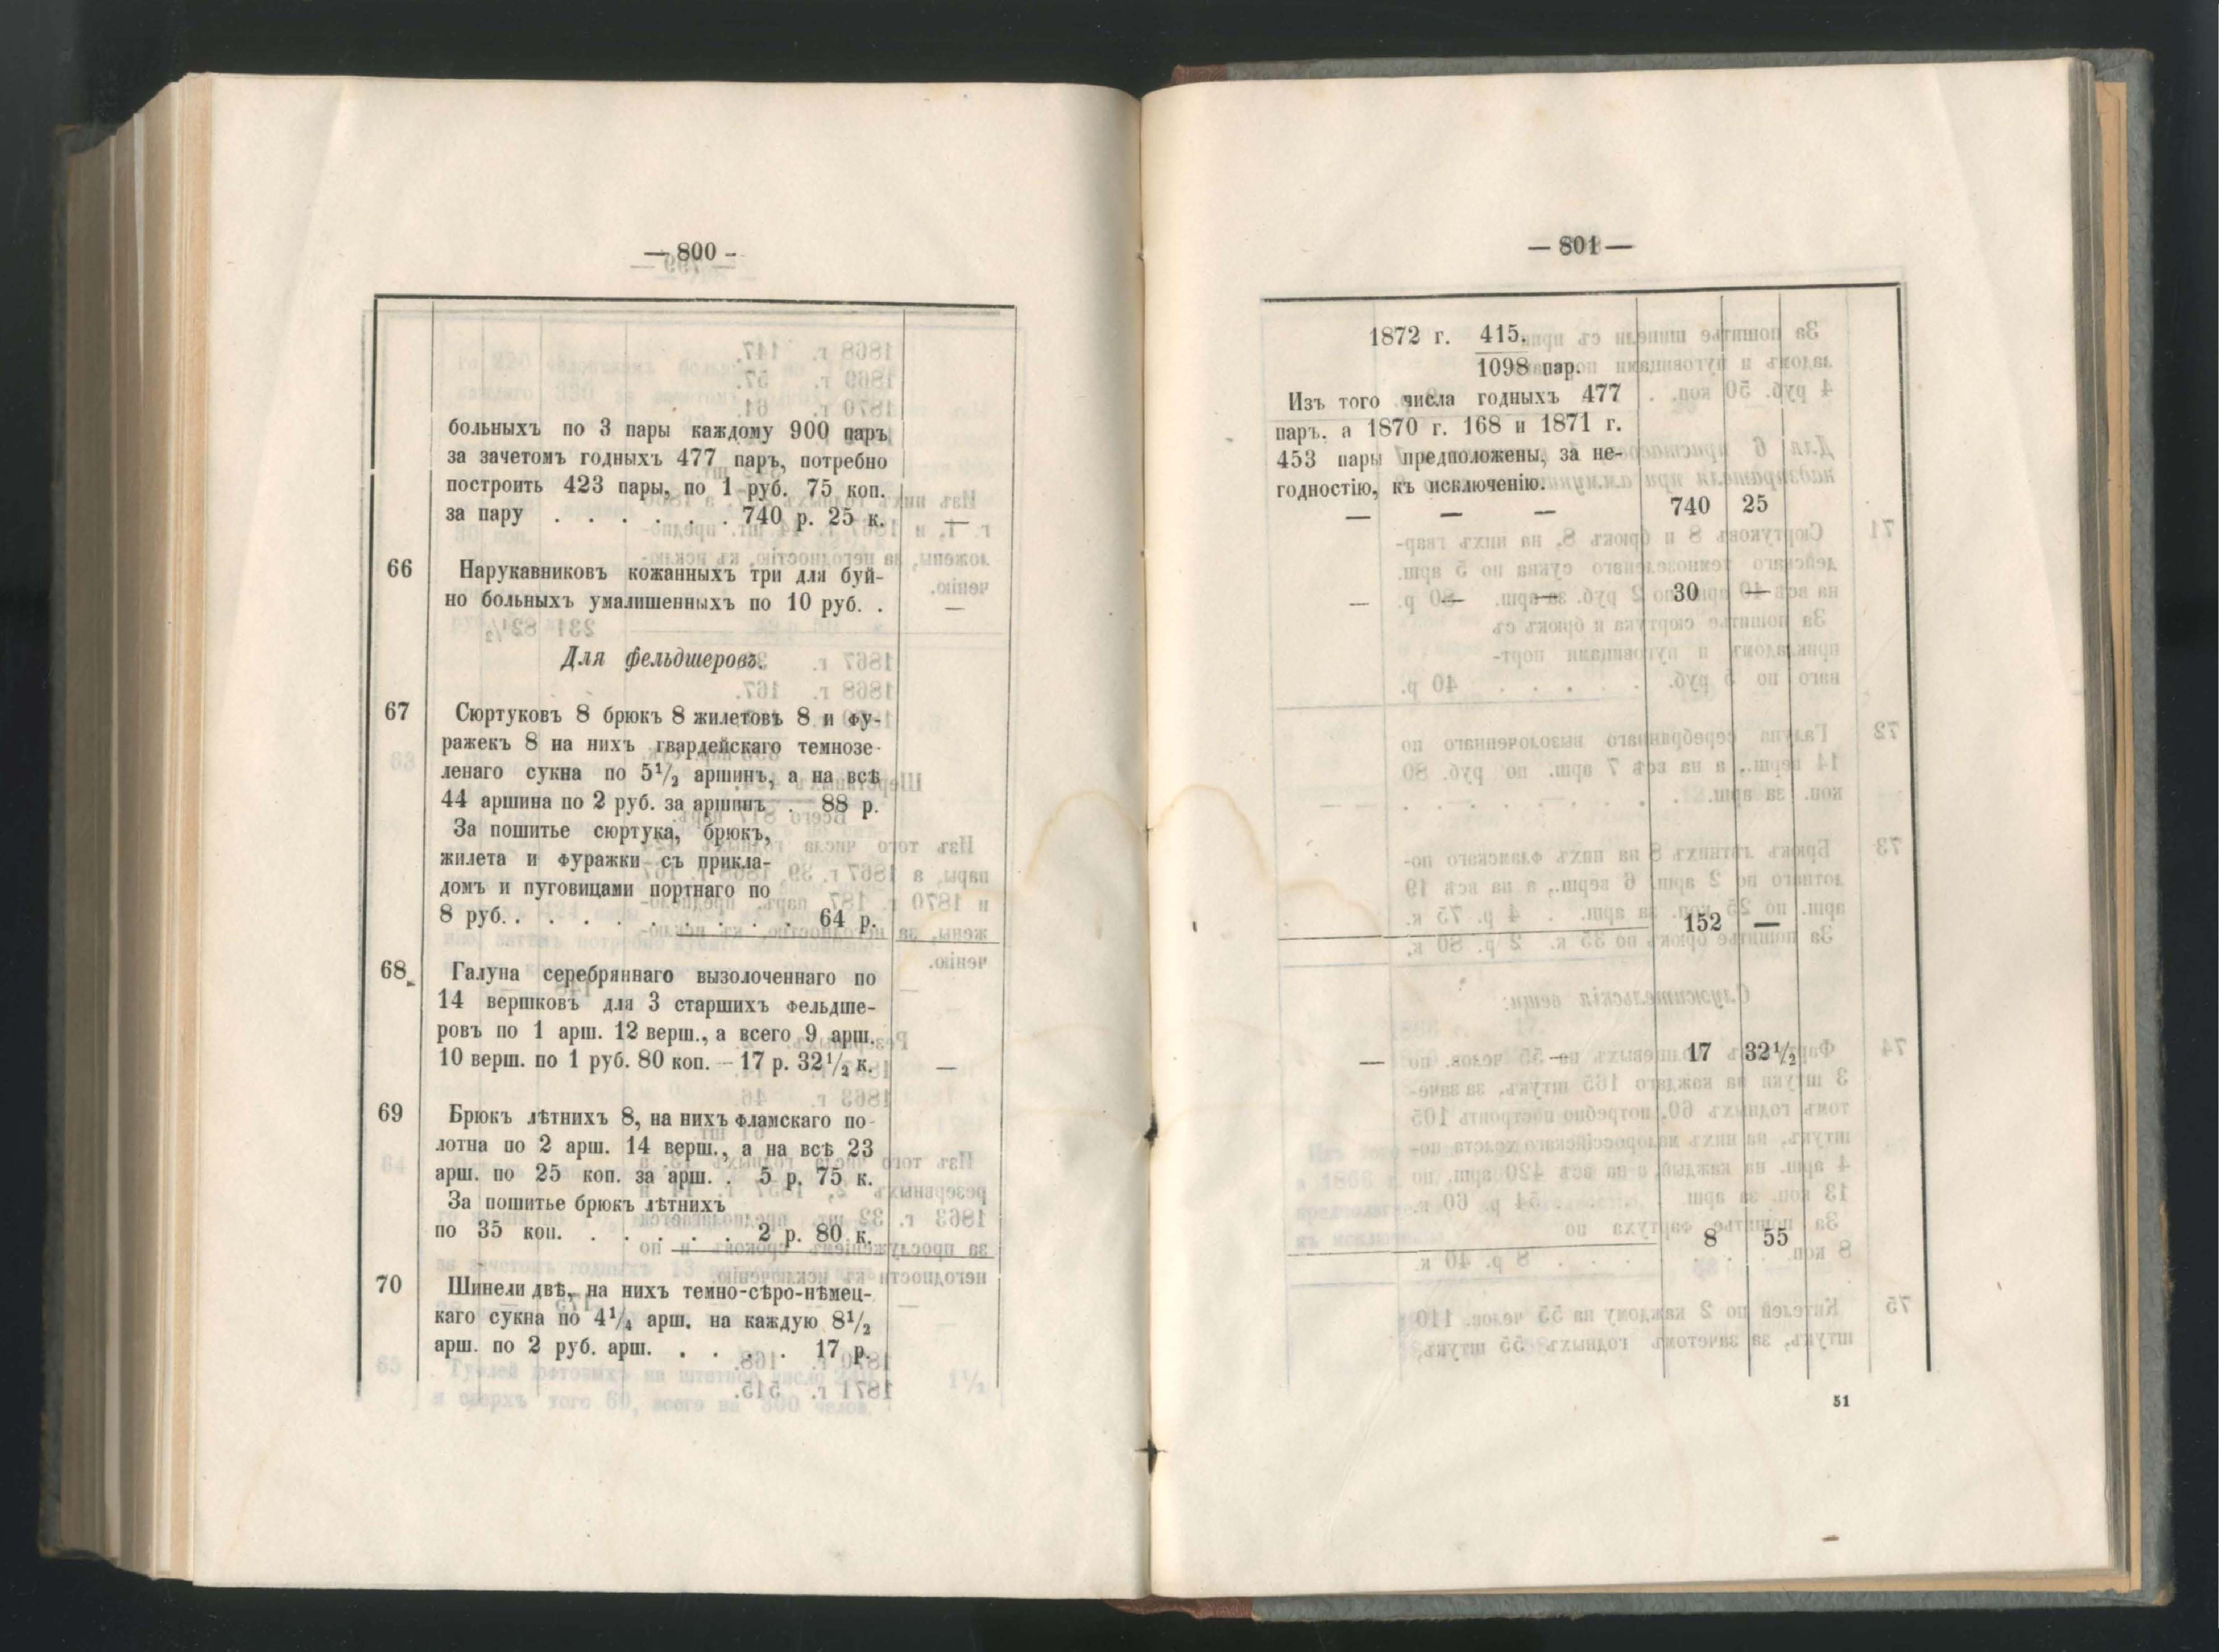 — 800 -
больныхъ по 3 пары каждому 900 паръ
за зачетомъ годныхъ 477 паръ, потребно
построить 423 пары, по 1 руб. 75 коп.
за пару . . . . . . 740 р. 25 к. —
66 Нарукавниковъ кожанныхъ три для буй-
но больныхъ умалишенныхъ по 10 руб. . —
Для фельдшеровъ.
67 Сюртуковъ 8 брюкъ 8 жилетовъ 8 и фу-
ражекъ 8 на нихъ гвардейскаго темнозе-
ленаго сукна по 5 1/2 аршинъ, а на всѣ
44 аршина по 2 руб. за аршинъ . 88 р.
За пошитье сюртука, брюкъ,
жилета и фуражки съ прикла-
домъ и пуговицами портнаго по
8 руб. . . . . . . . . . 64 р.
68 Галуна серебряннаго вызолоченнаго по
14 вершковъ для 3 старшихъ фельдше-
ровъ по 1 арш. 12 верш., а всего 9 арш.
10 верш. по 1 руб. 80 коп. — 17 р. 32 1/2 к. —
69 Брюкъ лѣтнихъ 8, на нихъ фламскаго по-
лотна по 2 арш. 14 верш., а на всѣ 23
арш. по 25 коп. за арш. . 5 р. 75 к.
За пошитье брюкъ лѣтнихъ
по 35 коп. . . . . . . 2 р. 80 к.
70 Шинели двѣ, на нихъ темно-сѣро-нѣмец-
каго сукна по 4 1/4 арш. на каждую 8 1/2
арш. по 2 руб. арш. . . . . 17 р.
— 801 —
1872 г. 415.
1098 пар.
Изъ того числа годныхъ 477
паръ, а 1870 г. 168 и 1871 г.
453 пары предположены, за не-
годностію, къ исключенію.
— — — 740 25
— — — 30 —
152 —
— — 17 32 1/2
8 55
51